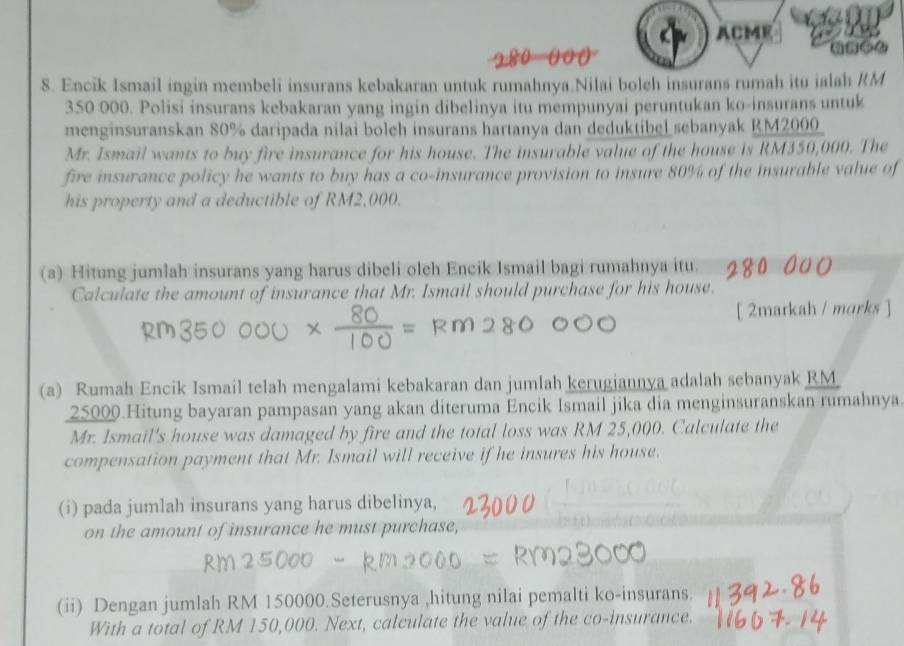 ACME
280 000
8. Encik Ismail ingin membeli insurans kebakaran untuk rumahnya.Nilai boleh insurans rumah itu ialah RM
350 000. Polisi insurans kebakaran yang ingin dibelinya itu mempunyai peruntukan ko-insurans untuk
menginsuranskan 80% daripada nilai boleh insurans hartanya dan deduktibel sebanyak RM2000
Mr. Ismail wants to buy fire insurance for his house. The insurable value of the house is RM350,000. The
fire insurance policy he wants to buy has a co-insurance provision to insure 80% of the insurable value of
his property and a deductible of RM2,000.
(a) Hitung jumlah insurans yang harus dibeli oleh Encik Ismail bagi rumahnya itu. 280 000
Calculate the amount of insurance that Mr. Ismail should purchase for his house.
[ 2markah / marks ]
RM350 000 × 80/100 = RM280 000
(a) Rumah Encik Ismail telah mengalami kebakaran dan jumlah kerugiannya adalah sebanyak RM
25000.Hitung bayaran pampasan yang akan diteruma Encik Ismail jika dia menginsuranskan rumahnya.
Mr. Ismail's house was damaged by fire and the total loss was RM 25,000. Calculate the
compensation payment that Mr. Ismail will receive if he insures his house.
(i) pada jumlah insurans yang harus dibelinya, 23000
on the amount of insurance he must purchase,
RM25000 - RM2000 = RM23000
(ii) Dengan jumlah RM 150000.Seterusnya ,hitung nilai pemalti ko-insurans. 11392.86
With a total of RM 150,000. Next, calculate the value of the co-insurance. 11607.14